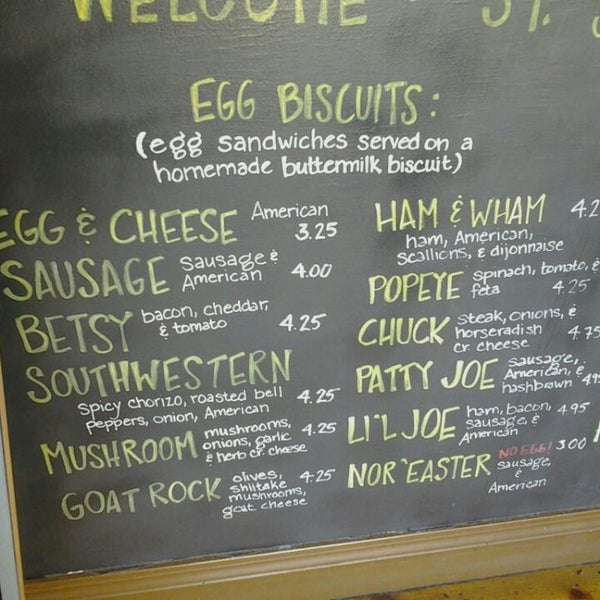 WELCOME - ST. S
EGG BISCUITS:
(egg sandwiches served on a
homemade buttermilk biscuit)
EGG & CHEESE American
3.25
SAUSAGE Sausage &
American 4.00
BETSY bacon, cheddar,
& tomato 4.25
SOUTHWESTERN
Spicy chorizo, roasted bell
peppers, onion, American 4.25
MUSHROOM mushrooms,
onions, garlic
& herb cr. cheese 4.25
GOAT ROCK olives,
shiitake
mushrooms,
goat cheese 4.25
HAM & WHAM 4.2
ham, American,
scallions, & dijonnaise
POPEYE spinach, tomato, &
feta 4.25
CHUCK steak, onions, &
horseradish
cr. cheese 4.75
PATTY JOE sausage,
American, &
hashbrown 4.9
LI'L JOE ham, bacon,
sausage, &
American 4.95
NOR'EASTER NO EGG! 3.00
sausage,
&
American